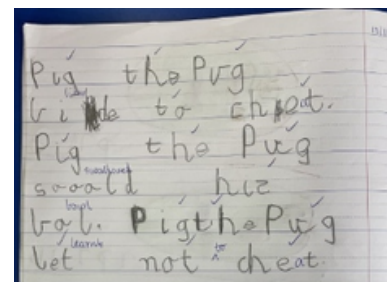 Pig the Pug
li de to cheat.
Pig the Pug
swallowed
sooald hiz
bowl
bol. Pig the Pug
learnt
let not to cheat.